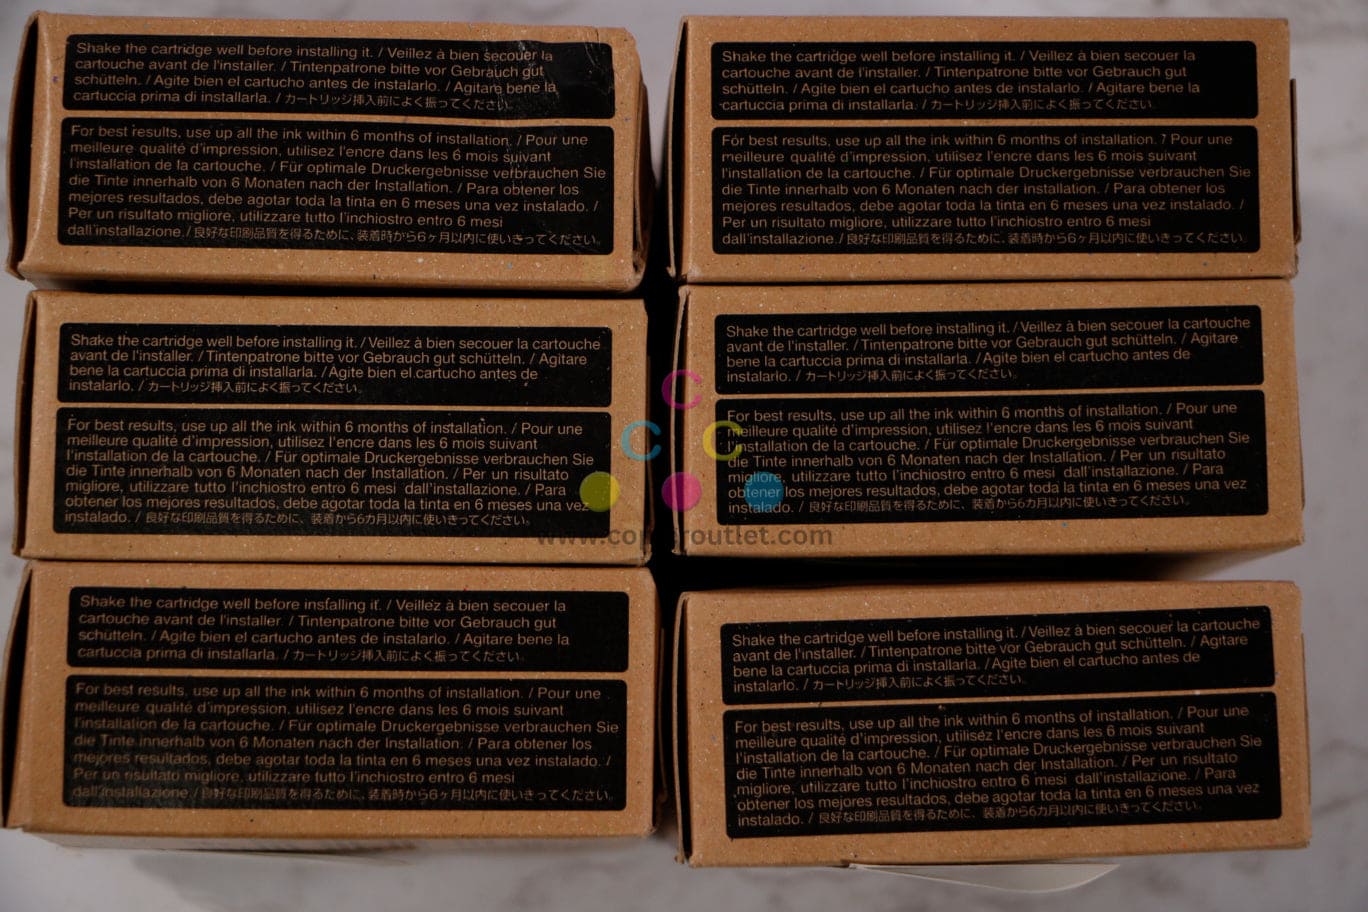 Shake the cartridge well before installing it. / Veillez à bien secouer la
cartouche avant de l'installer. / Tintenpatrone bitte vor Gebrauch gut
schütteln. / Agite bien el cartucho antes de instalarlo. / Agitare bene la
cartuccia prima di installarla. / カートリッジ挿入前によく振ってください。
For best results, use up all the ink within 6 months of installation. / Pour une
meilleure qualité d'impression, utilisez l'encre dans les 6 mois suivant
l'installation de la cartouche. / Für optimale Druckergebnisse verbrauchen Sie
die Tinte innerhalb von 6 Monaten nach der Installation. / Para obtener los
mejores resultados, debe agotar toda la tinta en 6 meses una vez instalado. /
Per un risultato migliore, utilizzare tutto l'inchiostro entro 6 mesi
dall'installazione. / 良好な印刷品質を得るために、装着時から6ヶ月以内に使いきってください。
Shake the cartridge well before installing it. / Veillez à bien secouer la
cartouche avant de l'installer. / Tintenpatrone bitte vor Gebrauch gut
schütteln. / Agite bien el cartucho antes de instalarlo. / Agitare bene la
cartuccia prima di installarla. / カートリッジ挿入前によく振ってください。
For best results, use up all the ink within 6 months of installation. / Pour une
meilleure qualité d'impression, utilisez l'encre dans les 6 mois suivant
l'installation de la cartouche. / Für optimale Druckergebnisse verbrauchen Sie
die Tinte innerhalb von 6 Monaten nach der installation. / Para obtener los
mejores resultados, debe agotar toda la tinta en 6 meses una vez instalado. /
Per un risultato migliore, utilizzare tutto l'inchiostro entro 6 mesi
dall'installazione. / 良好な印刷品質を得るために、装着時から6ヶ月以内に使いきってください。
Shake the cartridge well before installing it. / Veillez à bien secouer la cartouche
avant de l'installer. / Tintenpatrone bitte vor Gebrauch gut schütteln. / Agitare
bene la cartuccia prima di installarla. / Agite bien el cartucho antes de
instalarlo. / カートリッジ挿入前によく振ってください。
For best results, use up all the ink within 6 months of installation. / Pour une
meilleure qualité d'impression, utilisez l'encre dans les 6 mois suivant
l'installation de la cartouche. / Für optimale Druckergebnisse verbrauchen Sie
die Tinte innerhalb von 6 Monaten nach der Installation. / Per un risultato
migliore, utilizzare tutto l'inchiostro entro 6 mesi dall'installazione. / Para
obtener los mejores resultados, debe agotar toda la tinta en 6 meses una vez
instalado. / 良好な印刷品質を得るために、装着から6カ月以内に使いきってください。
Shake the cartridge well before installing it. / Veillez à bien secouer la cartouche
avant de l'installer. / Tintenpatrone bitte vor Gebrauch gut schütteln. / Agitare
bene la cartuccia prima di installarla. / Agite bien el cartucho antes de
instalarlo. / カートリッジ挿入前によく振ってください。
For best results, use up all the ink within 6 months of installation. / Pour une
meilleure qualité d'impression, utilisez l'encre dans les 6 mois suivant
l'installation de la cartouche. / Für optimale Druckergebnisse verbrauchen Sie
die Tinte innerhalb von 6 Monaten nach der Installation. / Per un risultato
migliore, utilizzare tutto l'inchiostro entro 6 mesi dall'installazione. / Para
obtener los mejores resultados, debe agotar toda la tinta en 6 meses una vez
instalado. / 良好な印刷品質を得るために、装着から6カ月以内に使いきってください。
C
C C
www.copieroutlet.com
Shake the cartridge well before installing it. / Veillez à bien secouer la
cartouche avant de l'installer. / Tintenpatrone bitte vor Gebrauch gut
schütteln. / Agite bien el cartucho antes de instalarlo. / Agitare bene la
cartuccia prima di installarla. / カートリッジ挿入前によく振ってください。
For best results, use up all the ink within 6 months of installation. / Pour une
meilleure qualité d'impression, utilisez l'encre dans les 6 mois suivant
l'installation de la cartouche. / Für optimale Druckergebnisse verbrauchen Sie
die Tinte innerhalb von 6 Monaten nach der Installation. / Para obtener los
mejores resultados, debe agotar toda la tinta en 6 meses una vez instalado. /
Per un risultato migliore, utilizzare tutto l'inchiostro entro 6 mesi
dall'installazione. / 良好な印刷品質を得るために、装着時から6ヶ月以内に使いきってください。
Shake the cartridge well before installing it. / Veillez à bien secouer la cartouche
avant de l'installer. / Tintenpatrone bitte vor Gebrauch gut schütteln. / Agitare
bene la cartuccia prima di installarla. / Agite bien el cartucho antes de
instalarlo. / カートリッジ挿入前によく振ってください。
For best results, use up all the ink within 6 months of installation. / Pour une
meilleure qualité d'impression, utilisez l'encre dans les 6 mois suivant
l'installation de la cartouche. / Für optimale Druckergebnisse verbrauchen Sie
die Tinte innerhalb von 6 Monaten nach der Installation. / Per un risultato
migliore, utilizzare tutto l'inchiostro entro 6 mesi dall'installazione. / Para
obtener los mejores resultados, debe agotar toda la tinta en 6 meses una vez
instalado. / 良好な印刷品質を得るために、装着から6カ月以内に使いきってください。